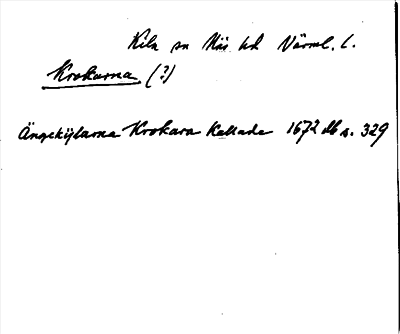 Kila sn Näs hd Värml. l.
Krokarna (?)
Ängekijlarna Krokara Kallade 1672 db s. 329